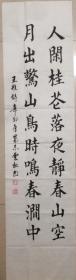 人閑桂花落夜靜春山空
月出驚山鳥時鳴春澗中
王維詩